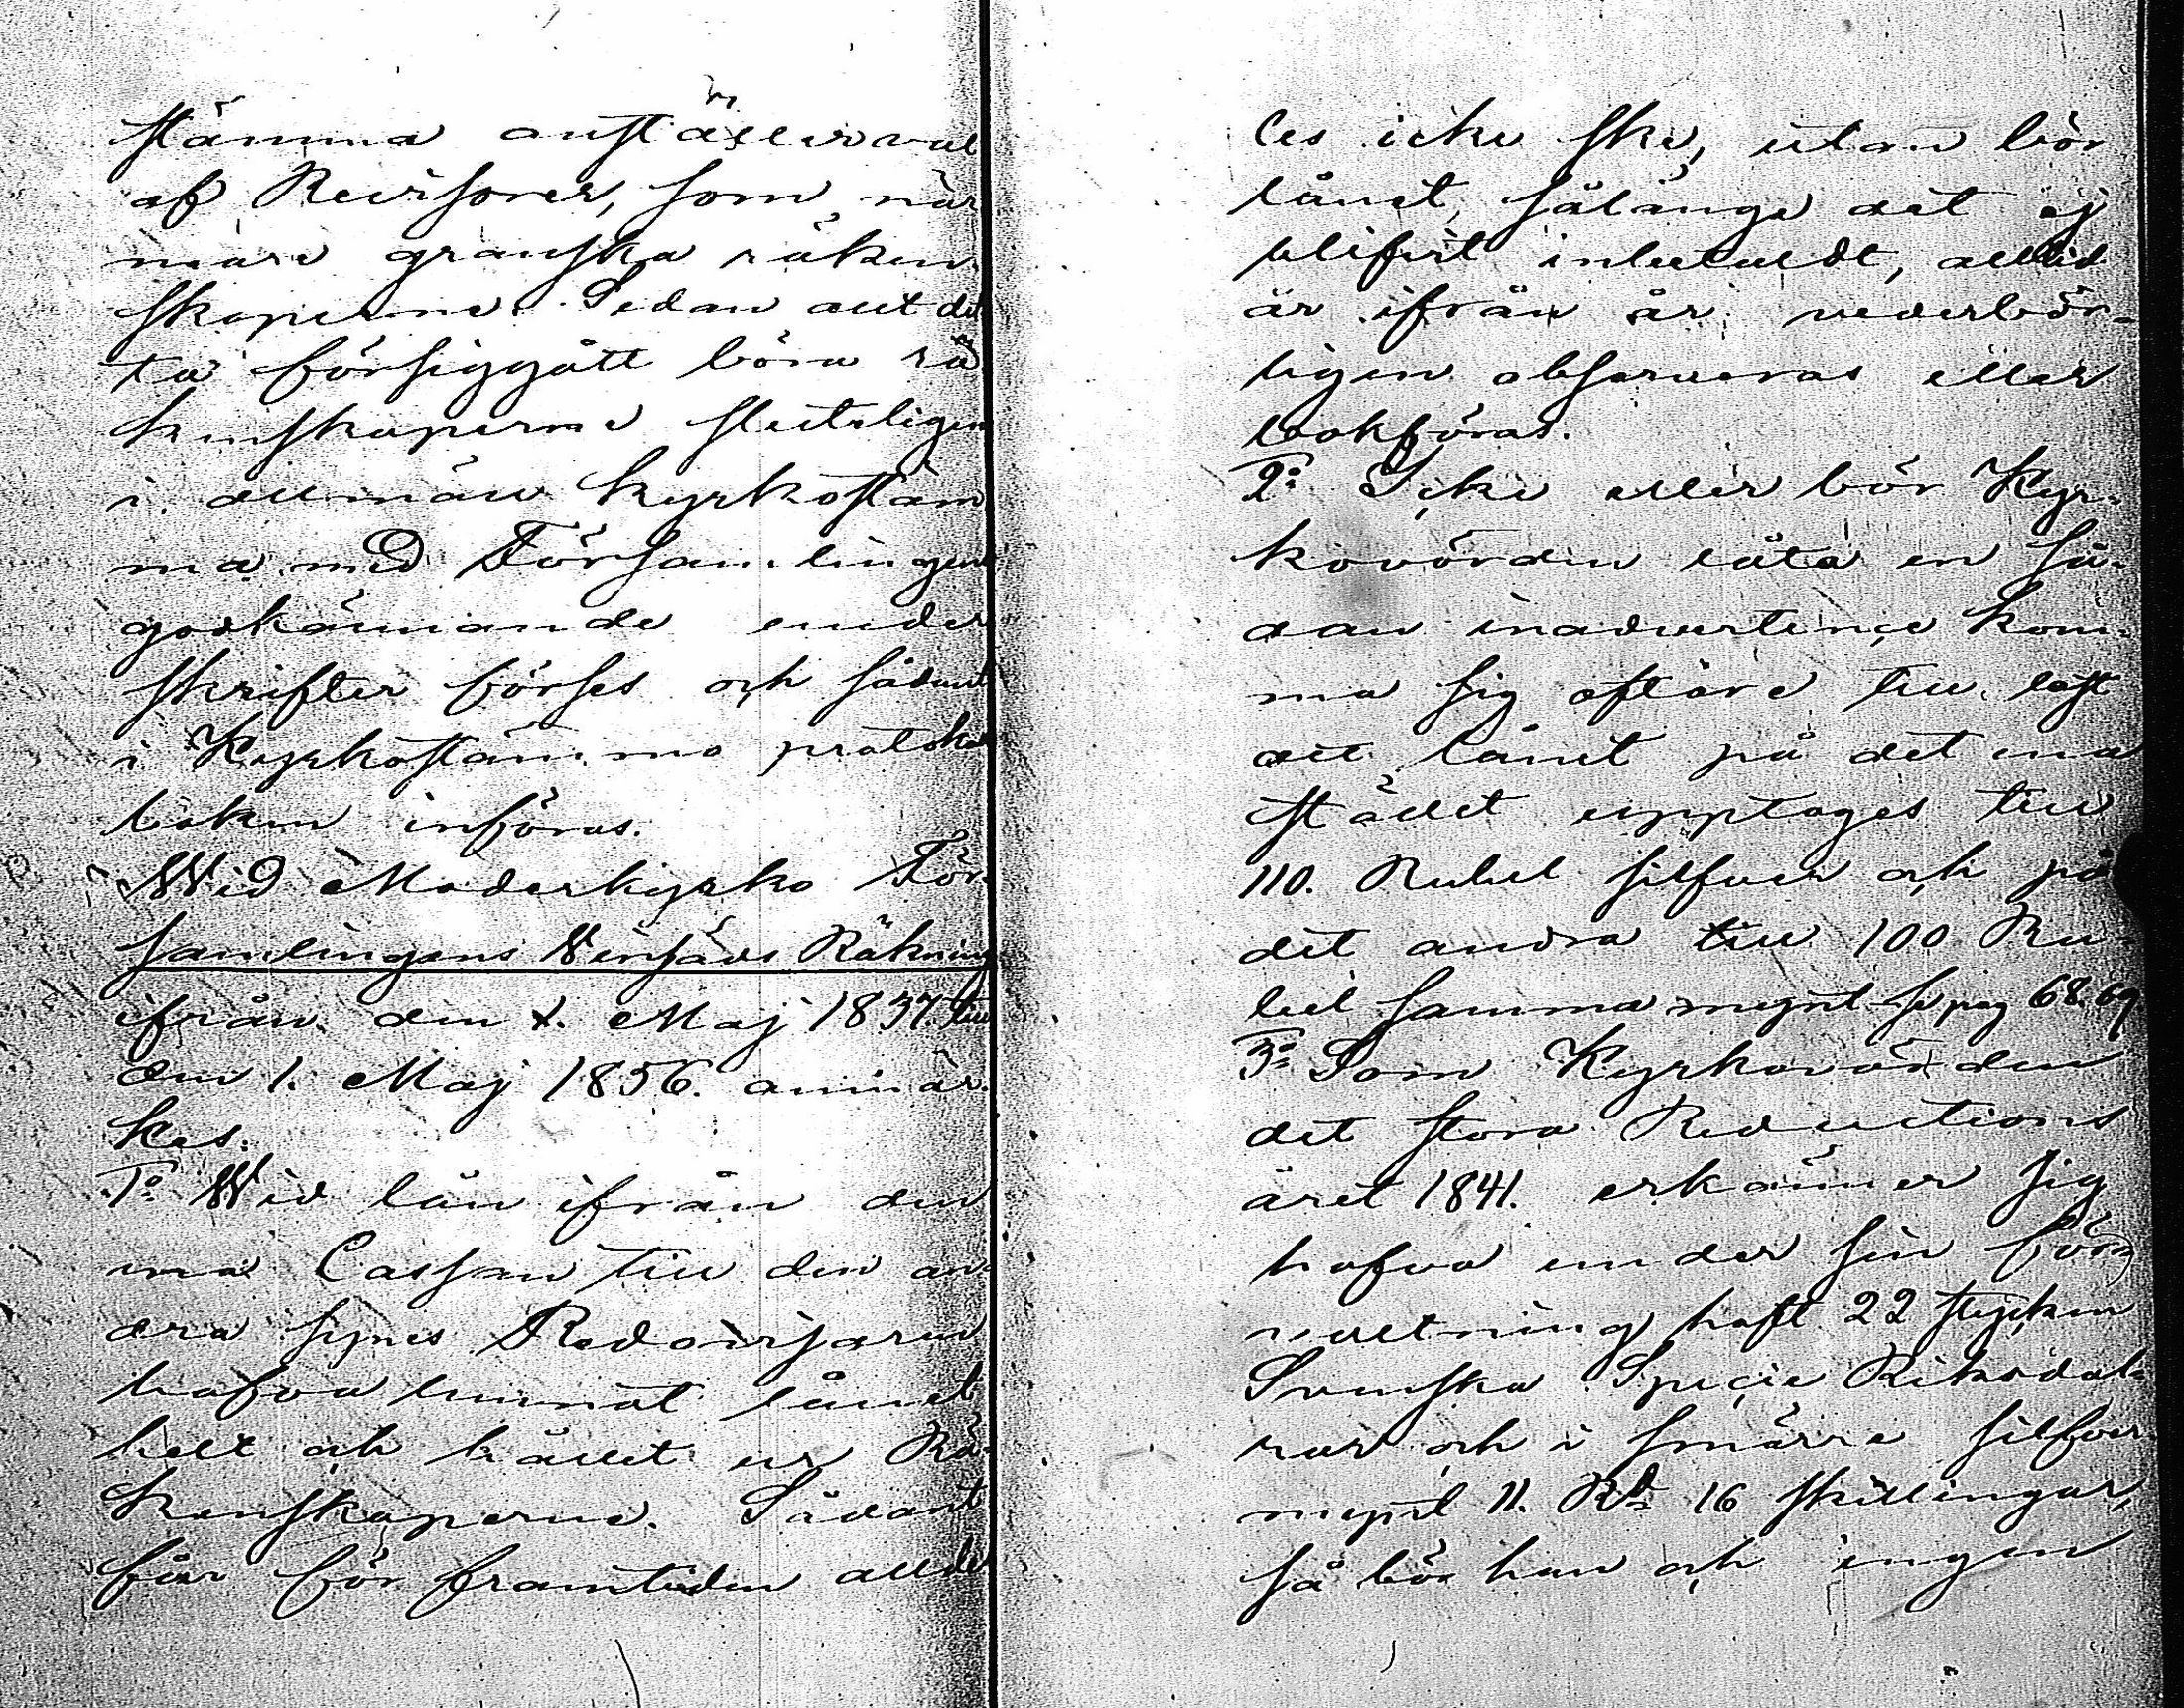 stämma anställer val
af Revisorer, som när
mare granska räken
skaperne. Sedan allt det
ta försiggått böra rä
kenskaperne sluteligen
i allmän kyrkostäm
ma med Församlingens
godkännande under
skrifter förses och sådant
i Kyrkostämmo protokolls
boken införas.
Wid Moderkyrko För
samlingens Vinsäds Räkning
ifrån den 1. Maj 1837. till
den 1. Maj 1856. anmär
kes:
1:o Wid lån ifrån den
ena Cassan till den an
dra synes Redovisaren
hafva lemnat lånet
helt och hållet ur Rä
kenskaperne. Sådant
får för framtiden allde
les icke ske, utan bör
lånet, sålänge det ej
blifvit inbetaldt, alltid
år ifrån år vederbör-
ligen observeras eller
bokföras.
2:o Icke eller bör Kyr-
kovärden låta en så-
dan inadvertence kom-
ma sig oftare till last
att lånet på det ena
stället upptages till
110. Rubel silfver och på
det andra till 100 Ru-
bel samma mynt se pag 68. 69
3:o Som Kyrkovärden
det stora Reductions
året 1841. erkänner sig
hafva under sin för-
valtning haft 22 stycken
Svenska Specie Riksdal-
rar och i smärre silfver
mynt 11. Rd 16 skillingar,
så bör han och ingen